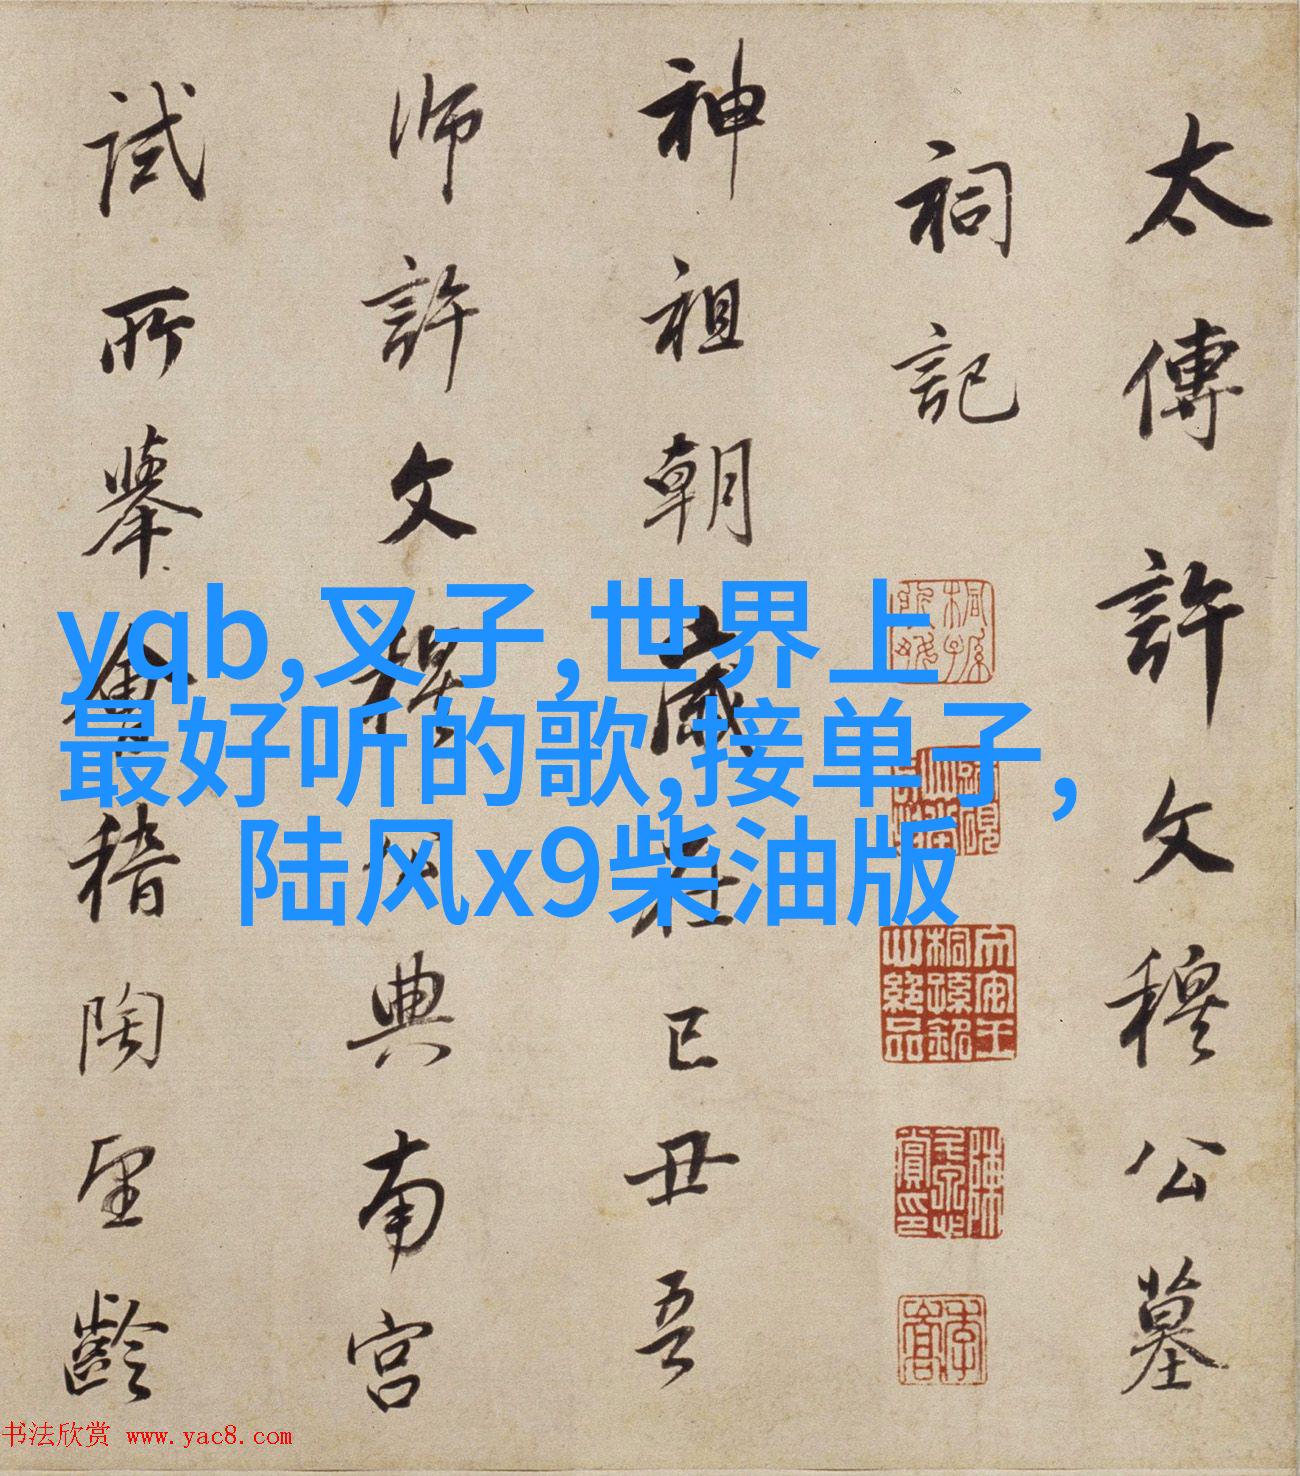 太傳許文穆公墓
祠記
神祖朝歲在己丑吾
師許文穆公典南宮
試所舉會稽陶望齡
yqb,叉子,世界上
最好听的歌,接单子,
陆风x9柴油版
书法欣赏 www.yac8.com